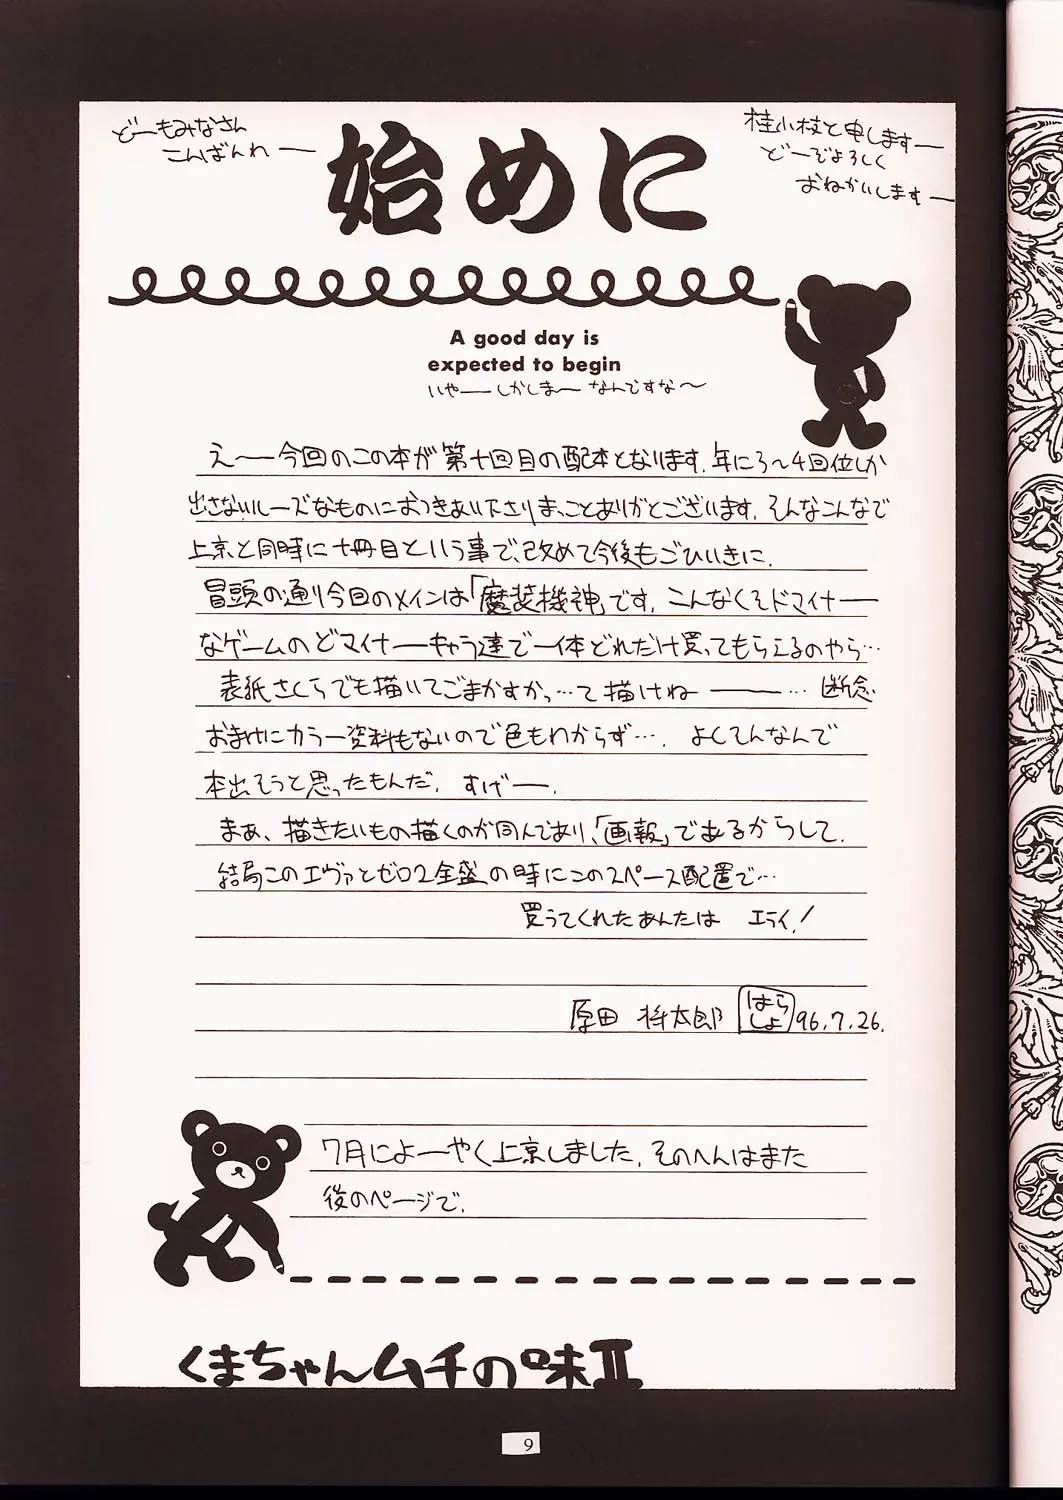 どーもみなさん
こんばんわー
始めに
桂小枝と申しますー
どーぞよろしく
おねがいしますー
A good day is
expected to begin
いやー しかしまー なんですな〜
えー今回のこの本が第十回目の配本となります。年に3〜4回位しか
出さないルーズなものにおつきあい下さりまっことありがとございます。そんなこんなで
上京と同時に十冊目という事で、改めて今後もごひいきに。
冒頭の通り今回のメインは「魔装機神」です。こんなくそドマイナー
なゲームのどマイナーキャラ達で一体どれだけ買ってもらえるのやら…
表紙さくらでも描いてごまかすかっ…て描けねー…断念
おまけにカラー資料もないので色もわからず…。よくそんなんで
本出そうと思ったもんだ。すげー。
まぁ、描きたいもの描くのが同人であり、「画報」であるからして。
結局このエヴァとゼロ2全盛の時にこのスペース配置で…
買うてくれたあんたは エライ!
原田 将太郎 はらしょ 96.7.26.
7月によーやく上京しました。そのへんはまた
後のページで。
くまちゃんムチの味II
9